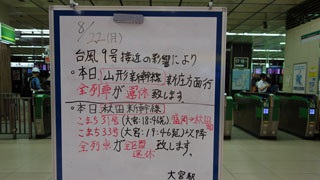 8/22(月)
台風9号接近の影響により
・本日、山形新幹線 新庄方面行
全列車が運休致します。
・本日【秋田新幹線】
こまち31号(大宮:18:46発)盛岡⇔秋田
こまち33号(大宮:19:46発)以降
全列車が全区間運休致します。
大宮駅